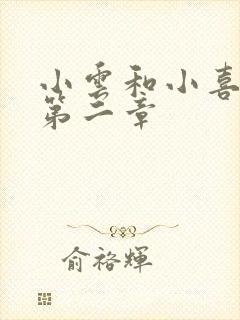 小雲和小喜
第二章
俞裕輝